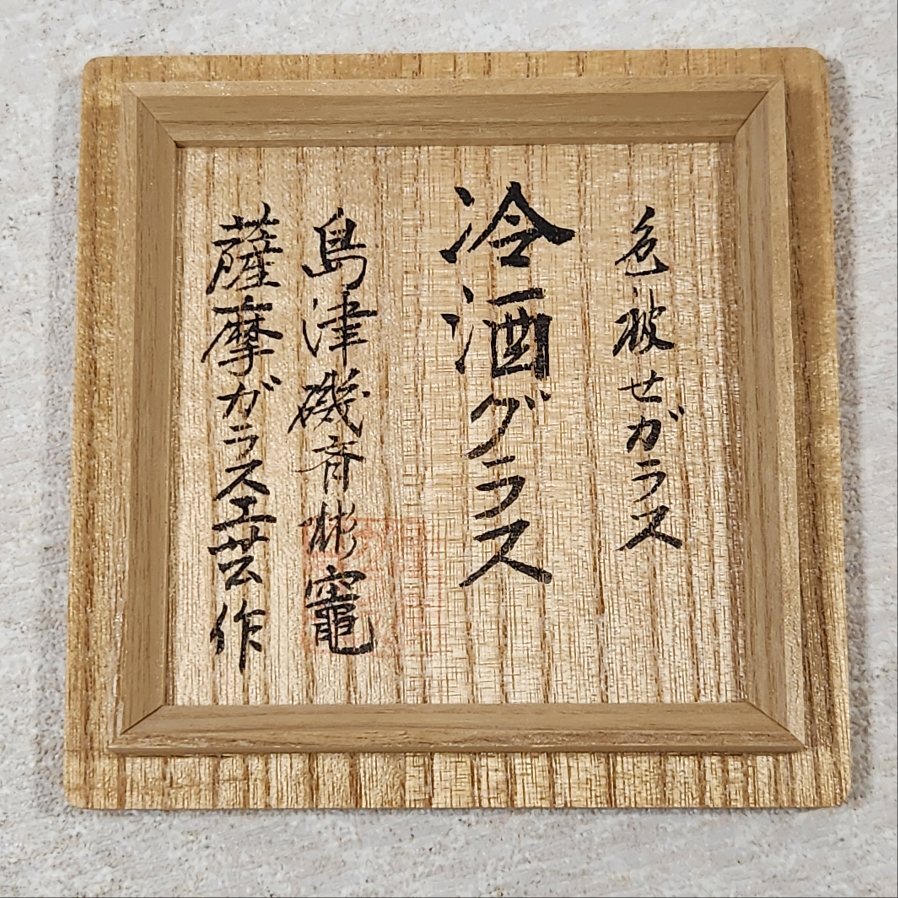 色被せガラス
冷酒グラス
島津磯斉彬竈
薩摩ガラス工芸作